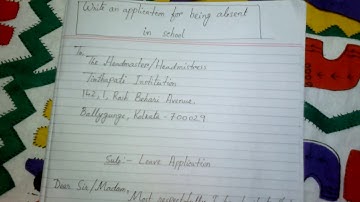 Write an application for being absent
in school
To,
The Headmaster/Headmistress
Tirthapati Institution
142, 1, Rash Behari Avenue.
Ballygunge, Kolkata - 700029
Sub:- Leave Application
Dear Sir/Madam,
Most respectfully I